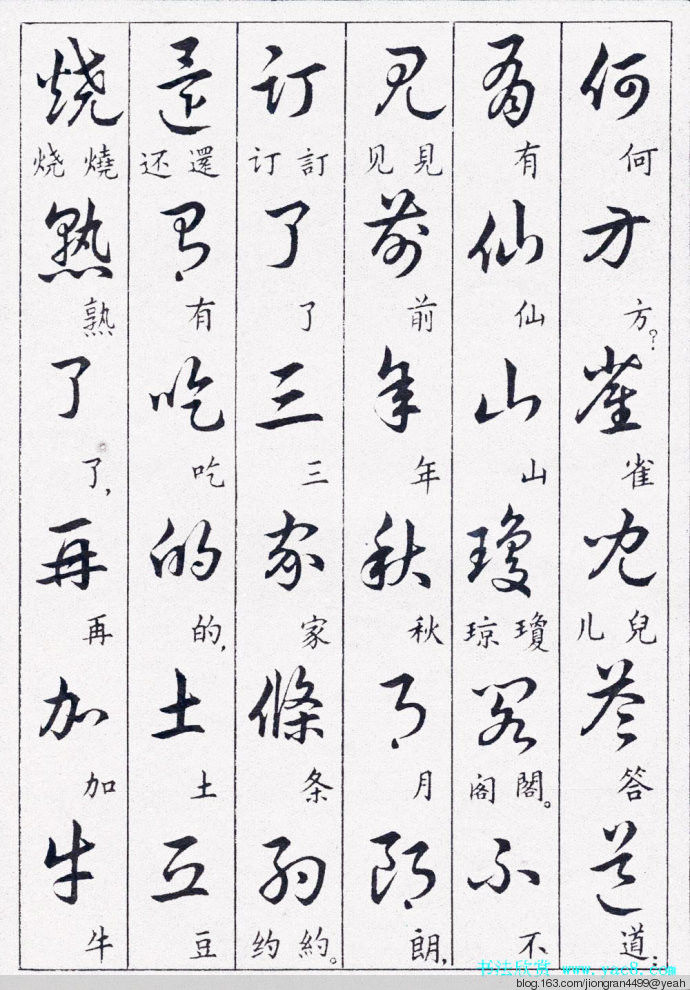 何方雀兒答道
何方？雀儿兒答道：
有仙山瓊閣不
有仙山琼瓊阁閣。不
見前年秋月朗
见見前年秋月朗，
订了三家條約
订訂了三家条约約。
還有吃的土豆
还還有吃的，土豆
烧熟了再加牛
烧燒熟了，再加牛
书法欣赏 www.yac8.com
blog.163.com/jiongran4499@yeah